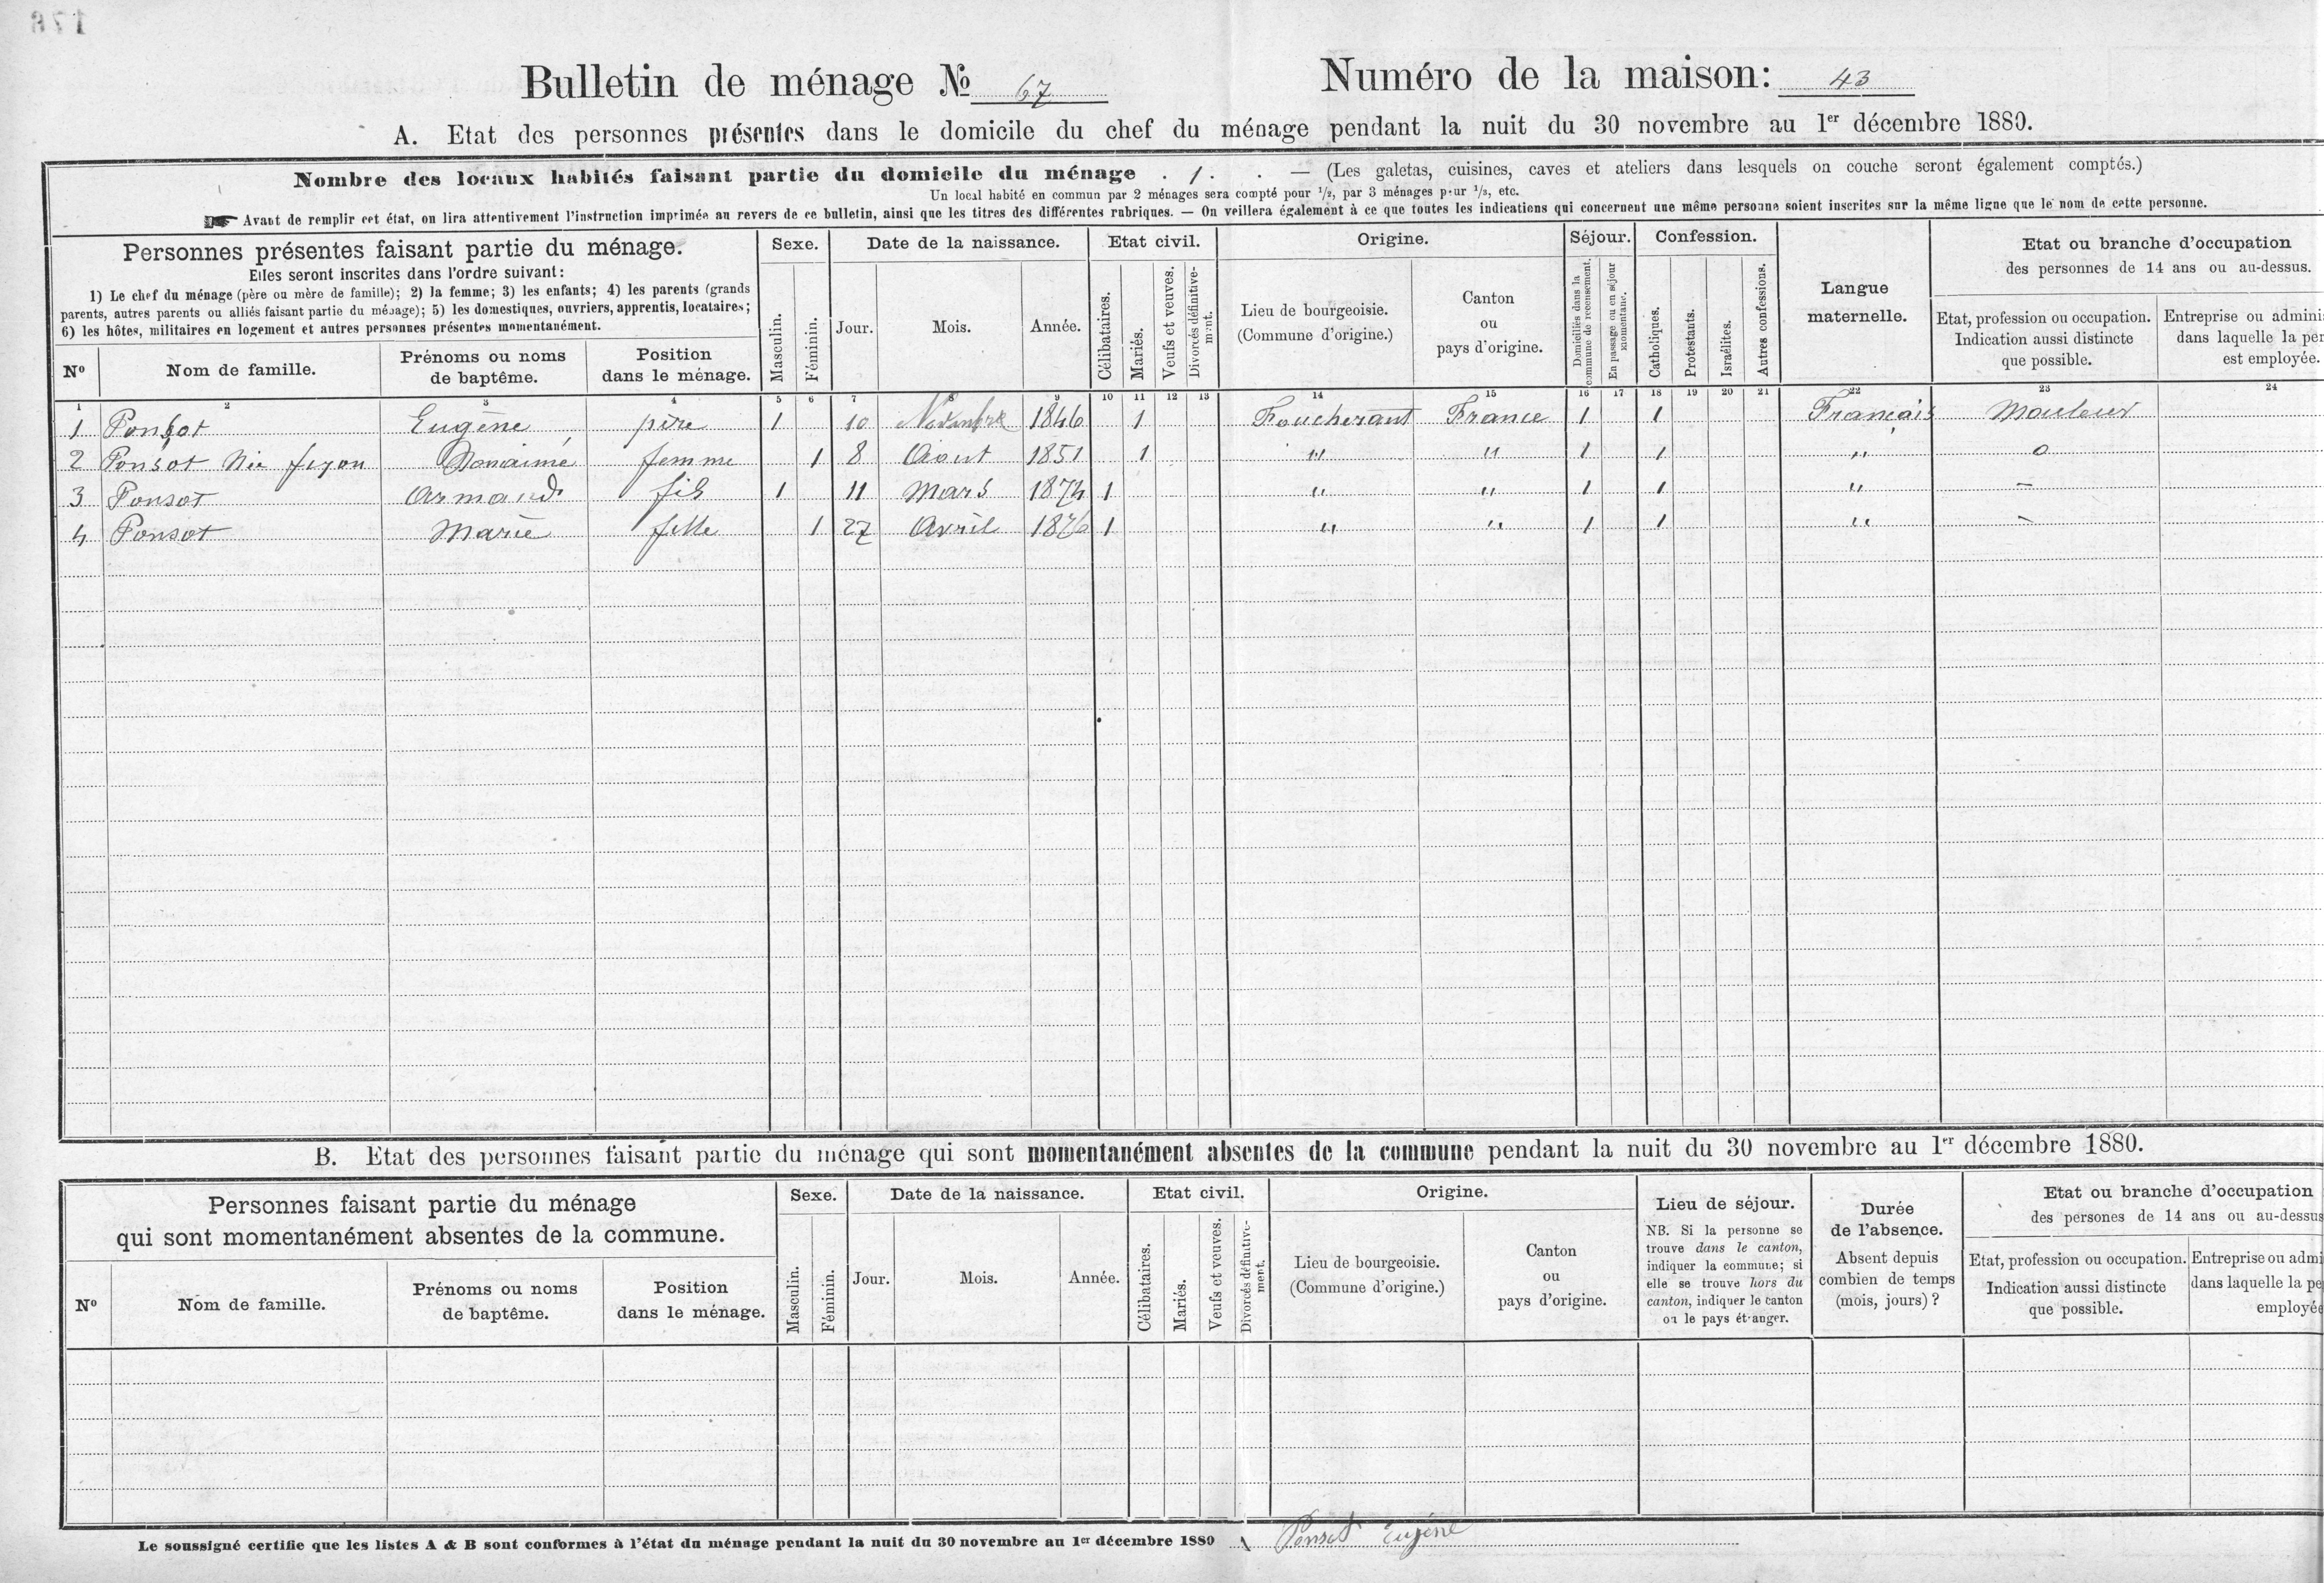 178
Bulletin de ménage № 67 Numéro de la maison: 43
A. Etat des personnes présentes dans le domicile du chef du ménage pendant la nuit du 30 novembre au 1er décembre 1880.
Nombre des locaux habités faisant partie du domicile du ménage . 1 . . — (Les galetas, cuisines, caves et ateliers dans lesquels on couche seront également comptés.)
Un local habité en commun par 2 ménages sera compté pour 1/2, par 3 ménages pour 1/3, etc.
Avant de remplir cet état, on lira attentivement l'instruction imprimée au revers de ce bulletin, ainsi que les titres des différentes rubriques. — On veillera également à ce que toutes les indications qui concernent une même personne soient inscrites sur la même ligne que le nom de cette personne.
Personnes présentes faisant partie du ménage.
Elles seront inscrites dans l'ordre suivant:
1) Le chef du ménage (père ou mère de famille); 2) la femme; 3) les enfants; 4) les parents (grands
parents, autres parents ou alliés faisant partie du ménage); 5) les domestiques, ouvriers, apprentis, locataires;
6) les hôtes, militaires en logement et autres personnes présentes momentanément.
Nº Nom de famille. Prénoms ou noms de baptême. Position dans le ménage.
Sexe. Masculin. Féminin.
Date de la naissance. Jour. Mois. Année.
Etat civil. Célibataires. Mariés. Veufs et veuves. Divorcés définitivement.
Origine. Lieu de bourgeoisie. (Commune d'origine.) Canton ou pays d'origine.
Séjour. Domiciliés dans la commune de recensement. En passage ou en séjour momentané.
Confession. Catholiques. Protestants. Israélites. Autres confessions.
Langue maternelle.
Etat ou branche d'occupation
des personnes de 14 ans ou au-dessus.
Etat, profession ou occupation. Indication aussi distincte que possible.
Entreprise ou admini
dans laquelle la per
est employée.
1 2 3 4 5 6 7 8 9 10 11 12 13 14 15 16 17 18 19 20 21 22 23 24
1 Ponsot Eugène père 1 10 Novembre 1846 1 Foucherant France 1 1 Français Mouleur
2 Ponsot Née femme 1 8 Aout 1851 1 " " 1 1 " o
3 Ponsot Armand fils 1 11 Mars 1874 1 " " 1 1 " –
4 Ponsot Marie fille 1 27 Avril 1876 1 " " 1 1 " –
B. Etat des personnes faisant partie du ménage qui sont momentanément absentes de la commune pendant la nuit du 30 novembre au 1er décembre 1880.
Personnes faisant partie du ménage
qui sont momentanément absentes de la commune.
Nº Nom de famille. Prénoms ou noms de baptême. Position dans le ménage.
Sexe. Masculin. Féminin.
Date de la naissance. Jour. Mois. Année.
Etat civil. Célibataires. Mariés. Veufs et veuves. Divorcés définitivement.
Origine. Lieu de bourgeoisie. (Commune d'origine.) Canton ou pays d'origine.
Lieu de séjour.
NB. Si la personne se
trouve dans le canton,
indiquer la commune; si
elle se trouve hors du
canton, indiquer le canton
ou le pays étranger.
Durée
de l'absence.
Absent depuis
combien de temps
(mois, jours)?
Etat ou branche d'occupation
des persones de 14 ans ou au-dessus
Etat, profession ou occupation. Indication aussi distincte que possible.
Entreprise ou admi
dans laquelle la pe
employée
Le soussigné certifie que les listes A & B sont conformes à l'état du ménage pendant la nuit du 30 novembre au 1er décembre 1880 Ponsot Eugène